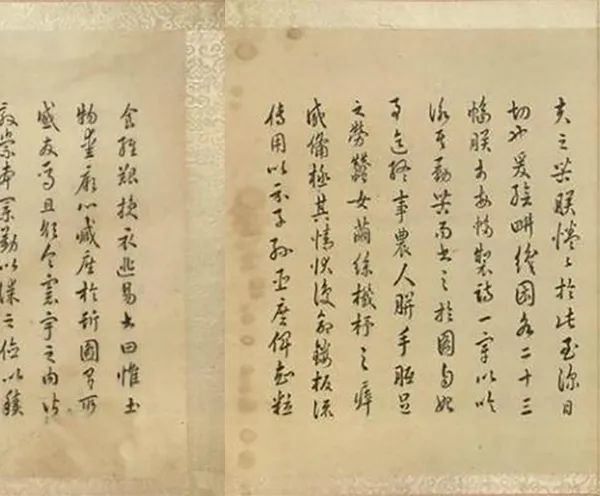 夫之苦朕惓惓於此至深且
切也爰繪耕織圖各二十三
幅朕於每幅製詩一章以吟
詠其勤苦而書之於圖自始
事迄終事農人胼手胝足
之勞蠶女繭絲機杼之瘁
咸備極其情狀復命鏤板流
傳用以示子孫臣庶俾知粒
食維艱授衣匪易書曰惟土
物愛厥心臧庶於斯圖有所
感發焉且欲令寰宇之內皆
敦崇本業勤以謀之儉以積